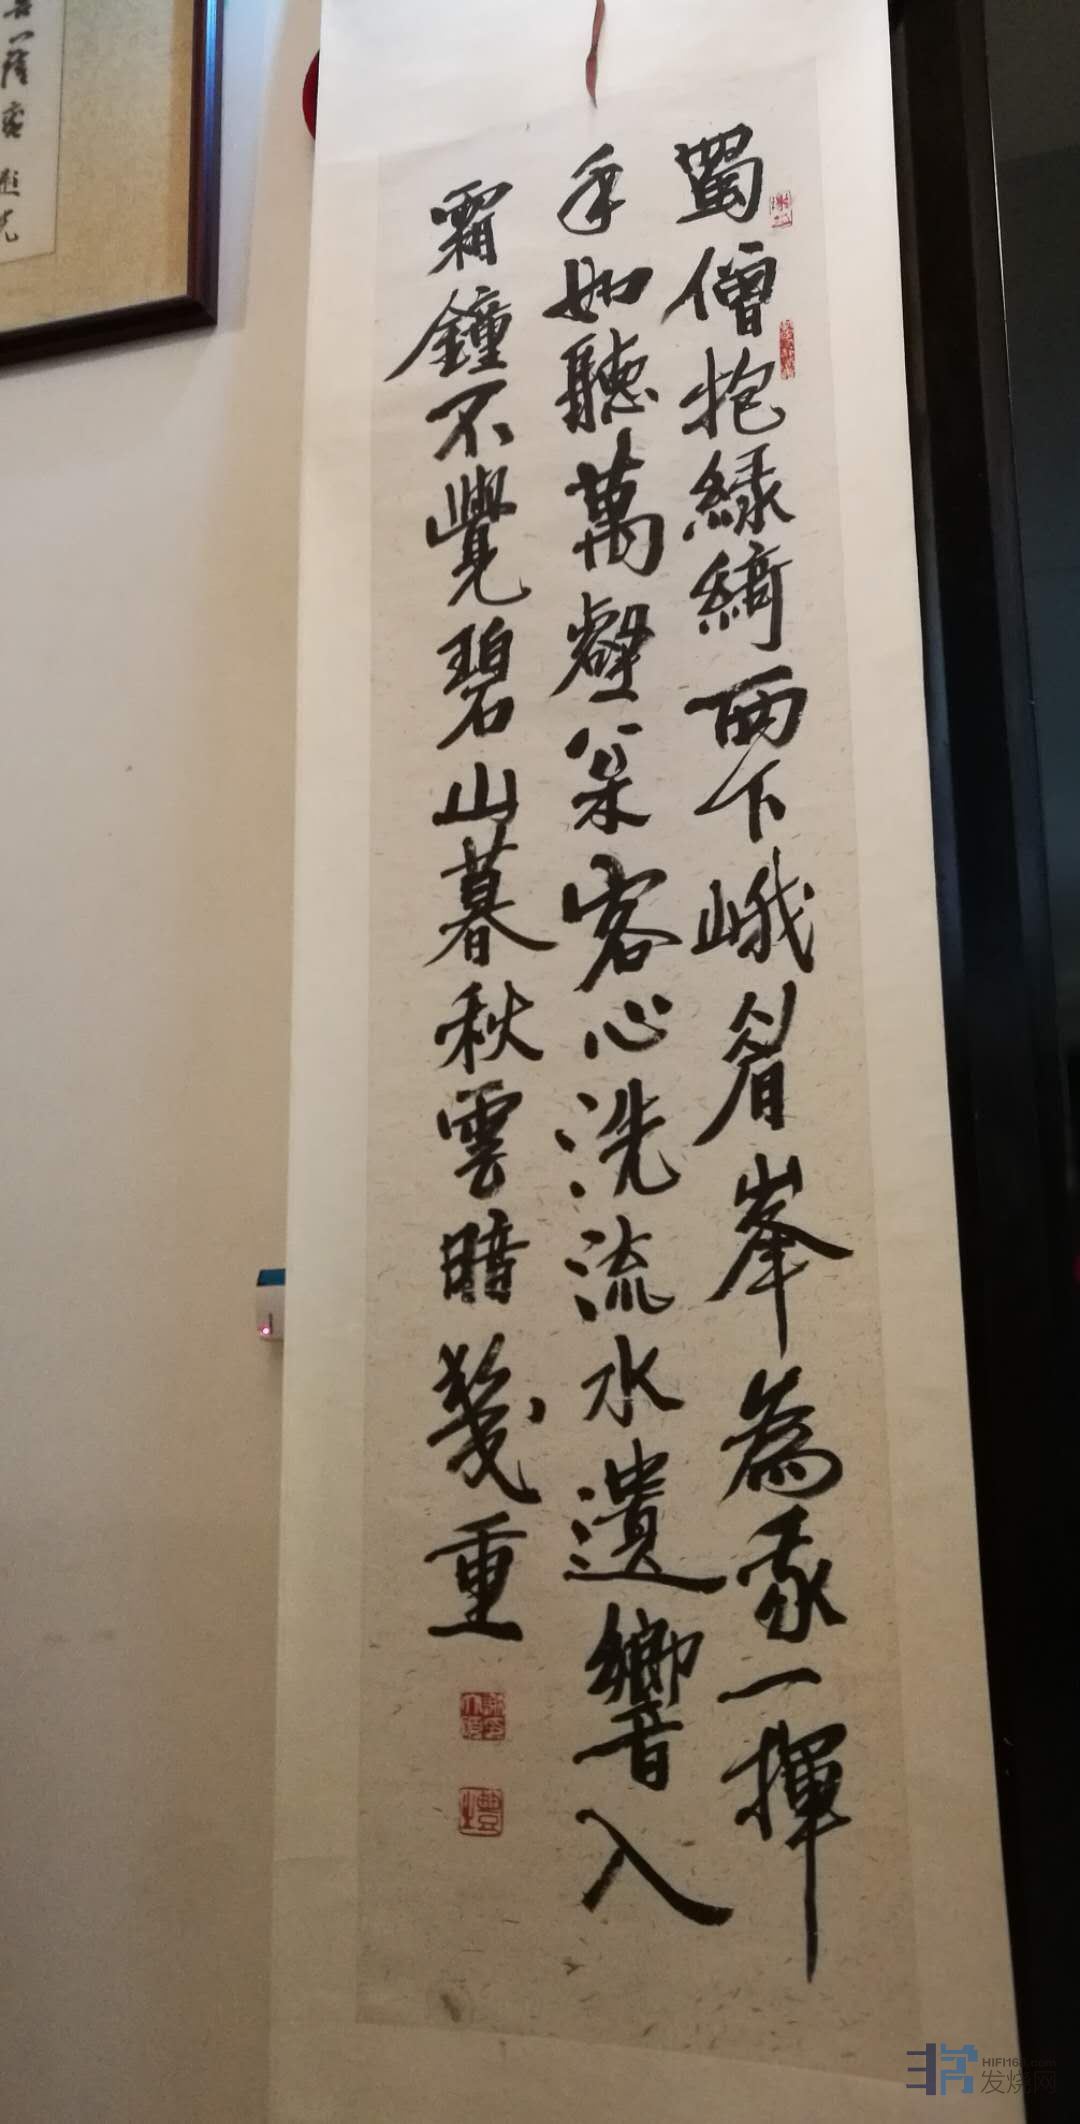 蜀僧抱綠綺西下峨眉峯為我一揮
手如聽萬壑枀客心洗流水遺響入
霜鐘不覺碧山暮秋雲暗幾重
HIFI168.com
发烧网